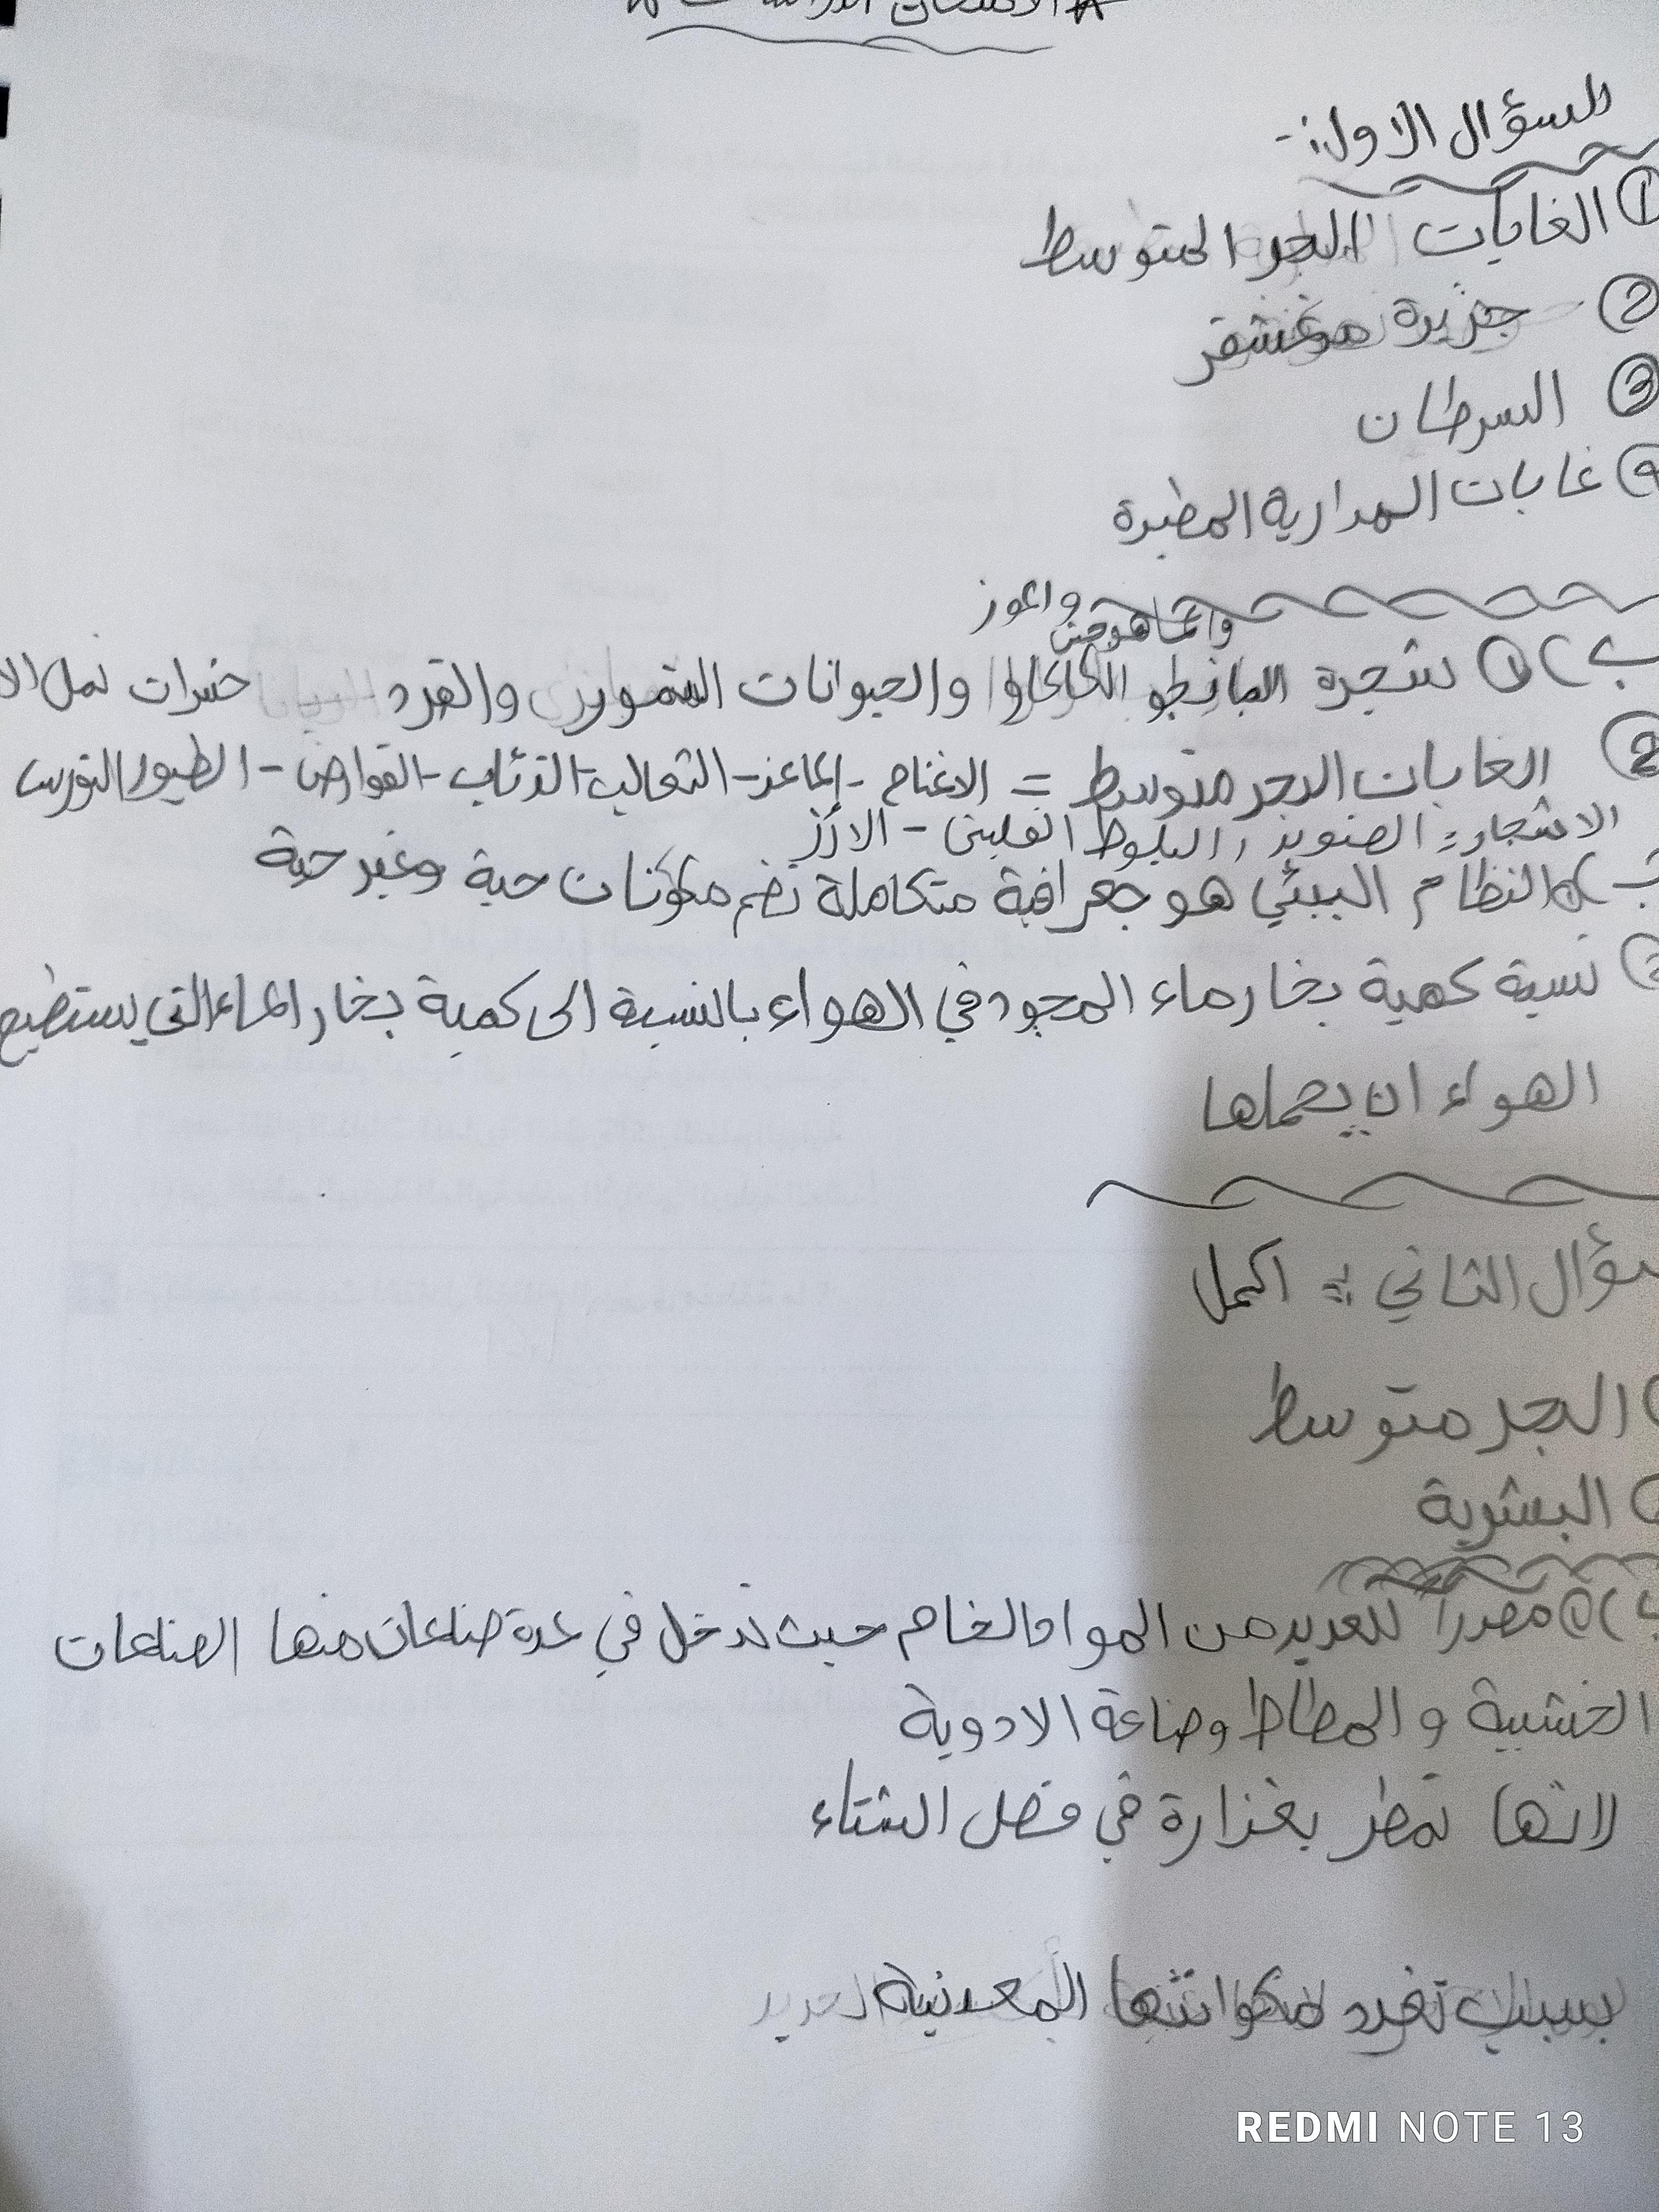 السؤال الاول:-
① الغابات البحر المتوسط
② جزيرة مدغشقر
③ السرطان
غابات المدارية المطيرة
والموز
والماهوجني
ب) ① شجرة المانجو الكاكاو والحيوانات الشموبزي والقرد حشرات نمل الا
② الغابات البحر متوسط = الاغنام - الماعز - الثعالب - الذئاب - القوارض - الطيور النورس
الاشجار: الصنوبر، البلوط الفليني - الارز
النظام البيئي هو جغرافية متكاملة تضم مكونات حية وغير حية
نسبة كمية بخار ماء الموجود في الهواء بالنسبة الى كمية بخار الماء التي يستطيع
الهواء ان يحملها
سؤال الثاني :- اكمل
البحر متوسط
البشرية
ب) ① مصدرا للعديد من المواد الخام حيث تدخل في عدة صناعات منها الصناعات
الخشبية و المطاط وصناعة الادوية
لانها تمطر بغزارة في فصل الشتاء
بسبب تعدد مكوانتها المعدنية
REDMI NOTE 13